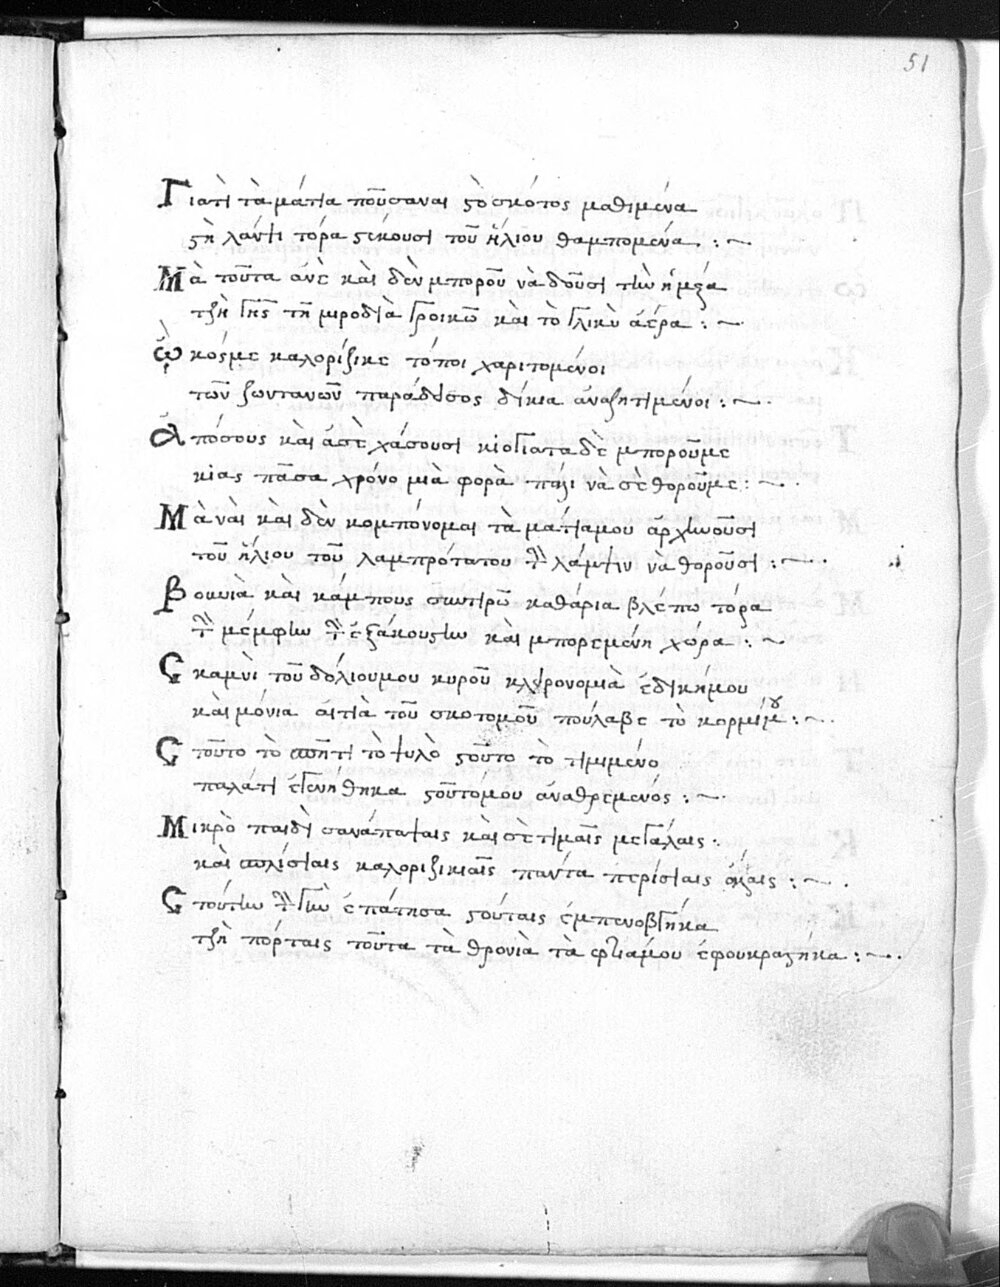 51
Γιατὶ τὰ μάτια ποῦσαναι ςὸ σκότος μαθιμένα
ςὴ λάψι τόρα ςέκουσι τοῦ ἥλιου θαμπομένα : ~
Μὰ τοῦτα ἀνὲ καὶ δὲν μποροῦ νὰ δοῦσι τὴν ημέρα
τζῆ γῆς τὴ μιροδιὰ γροικῶ καὶ τὸ γλικὺ ἀέρα : ~
ὦ κόςμε καλορίζικε τόποι χαριτομένοι
τῶν ζωντανῶν παράδισος δίκια ἀναζητιμένοι : ~
Ἀπόσους καὶ ἀσὲ χάσουσι κιογιατα δὲ μποροῦμε
κιας πᾶσα χρόνο μιὰ φορὰ πάλι νὰ σὲ θοροῦμε : ~
Μὰ ναὶ καὶ δὲν κομπόνομαι τὰ μάτιαμου αρχινοῦσι
τοῦ ἥλιου τοῦ λαμπρότατου τὴν λάμψιν να θοροῦσι : ~
Βουνιὰ καὶ κάμπους συντιρῶ καθάρια βλέπω τόρα
τὴν μέμφιν τὴν ἐξάκουςιν καὶ μπορεμένη χόρα : ~
Σ καμνὶ τοῦ δόλιουμου κυροῦ κλιρονομιὰ ἐδικήμου
καὶ μόνια αιτιὰ τοῦ σκοτομοῦ πούλαβε τὸ κορμίμου : ~
Σ τοῦτο τὸ σπήτι τὸ ψυλὸ ςοῦτο τὸ τιμιμένο
παλάτι ἐγενήθηκα ςοῦτομου ἀναθρεμένος : ~
Μικρὸ παιδὶ σανάπαψαις καὶ σὲ τιμαῖς μεγάλαις .
καὶ πολίσιαις καλοριζικιαῖς παντα περίσιαις ἄλλαις : ~
Σ τούτην τὴν γῆν ἐπάτησα ςούταις ἐμπενοβγῆκα
τζῆ πόρταις τοῦτα τὰ θρονιὰ τὰ φτιάμου ἐφουκραςήκα : ~